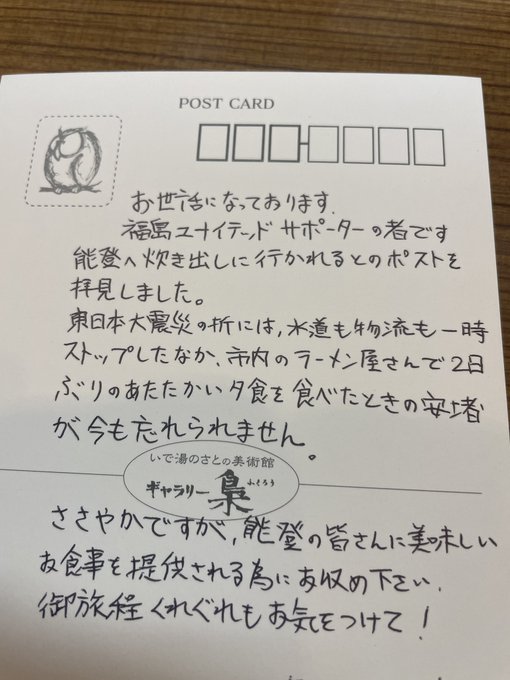 POST CARD
お世話になっております
福島ユナイテッド サポーターの者です
能登へ炊き出しに行かれるとのポストを
拝見しました。
東日本大震災の折には、水道も物流も一時
ストップしたなか、市内のラーメン屋さんで2日
ぶりのあたたかい夕食を食べたときの安堵
が今も忘れられません。
いで湯のさとの美術館
ギャラリー梟
ふくろう
ささやかですが、能登の皆さんに美味しい
お食事を提供される為にお収め下さい.
御旅程くれぐれもお気をつけて!